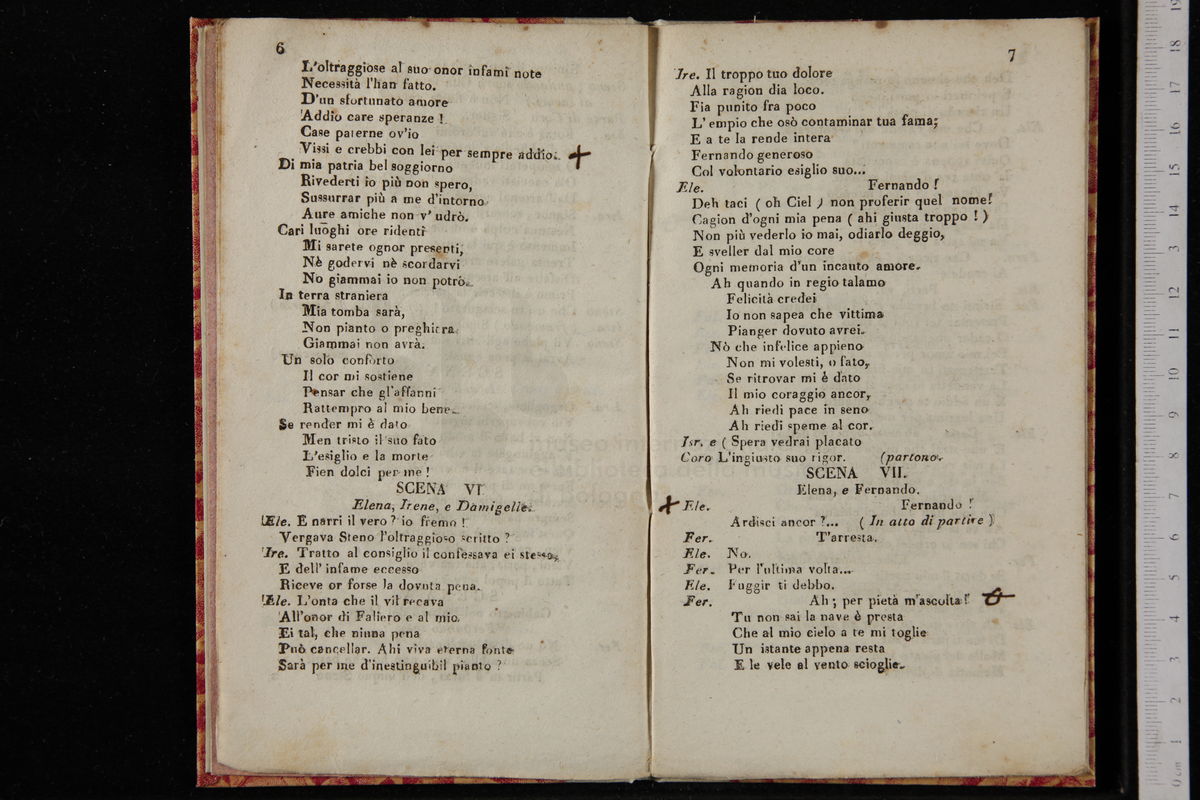 6
L'oltraggiose al suo onor infami note
Necessità l'han fatto.
D'un sfortunato amore
Addio care speranze !
Case paterne ov'io
Vissi e crebbi con lei per sempre addio.
Di mia patria bel soggiorno
Rivederti io più non spero,
Sussurrar più a me d'intorno
Aure amiche non v' udrò.
Cari luoghi ore ridenti
Mi sarete ognor presenti,
Nè godervi nè scordarvi
No giammai io non potrò.
In terra straniera
Mia tomba sarà,
Non pianto o preghiera
Giammai non avrà.
Un solo conforto
Il cor mi sostiene
Pensar che gl'affanni
Rattempro al mio bene.
Se render mi è dato
Men tristo il suo fato
L'esiglio e la morte
Fien dolci per me !
SCENA VI
Elena, Irene, e Damigelle.
Ele. E narri il vero ? io fremo !
Vergava Steno l'oltraggioso scritto ?
Ire. Tratto al consiglio il confessava ei stesso,
E dell' infame eccesso
Riceve or forse la dovuta pena.
Ele. L'onta che il vil recava
All'onor di Faliero e al mio.
Ei tal, che niuna pena
Può cancellar. Ahi viva eterna fonte
Sarà per me d'inestinguibil pianto ?
7
Ire. Il troppo tuo dolore
Alla ragion dia loco.
Fia punito fra poco
L' empio che osò contaminar tua fama;
E a te la rende intera
Fernando generoso
Col volontario esiglio suo...
Ele. Fernando !
Deh taci ( oh Ciel ) non proferir quel nome!
Cagion d'ogni mia pena ( ahi giusta troppo ! )
Non più vederlo io mai, odiarlo deggio,
E sveller dal mio core
Ogni memoria d'un incauto amore.
Ah quando in regio talamo
Felicità credei
Io non sapea che vittima
Pianger dovuto avrei.
Nò che infelice appieno
Non mi volesti, o fato,
Se ritrovar mi è dato
Il mio coraggio ancor,
Ah riedi pace in seno
Ah riedi speme al cor.
Isr. e ( Spera vedrai placato
Coro L'ingiusto suo rigor. (partono.
SCENA VII.
Elena, e Fernando.
Ele. Fernando !
Ardisci ancor ?... ( In atto di partire )
Fer. T'arresta.
Ele. No.
Fer. Per l'ultima volta...
Ele. Fuggir ti debbo.
Fer. Ah ; per pietà m'ascolta !
Tu non sai la nave è presta
Che al mio cielo a te mi toglie
Un istante appena resta
E le vele al vento scioglie.